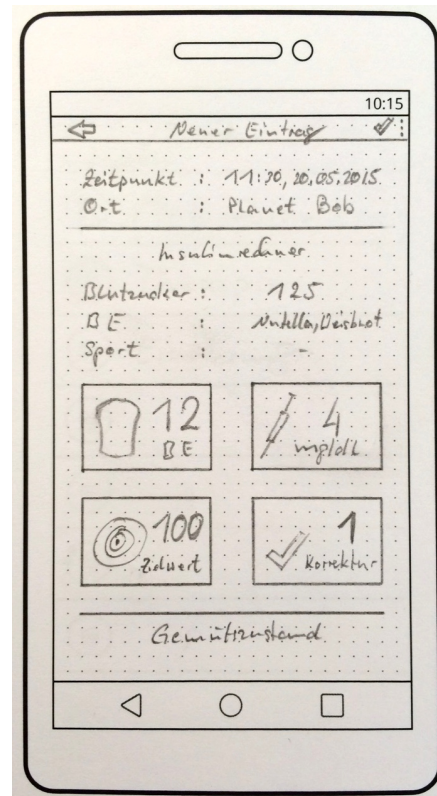 10:15
Neuer Eintrag
Zeitpunkt : 11:30, 20.05.2015
Ort : Planet Bob
Insulinrechner
Blutzucker : 125
BE : Nutella,
Sport : -
12
BE
4
mg/dL
100
Zielwert
1
Korrektur
Gemütszustand